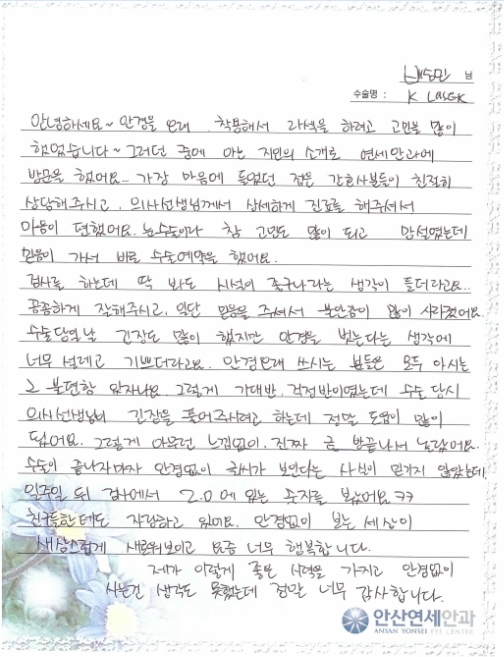 님
수술명 : K LASEK
안녕하세요~ 안경을 오래 착용해서 라섹을 하려고 고민을 많이
했었습니다~ 그러던 중에 아는 지인의 소개로 연세안과에
방문을 했어요.. 가장 마음에 들었던 점은 간호사분들이 친절히
상담해주시고, 의사선생님께서 상세하게 진료를 해주셔서
마음이 편했어요. 눈수술이라 참 고민도 많이 되고 망설였는데
믿음이 가서 바로 수술예약을 했어요.
검사를 하는데 딱 봐도 시설이 좋구나라는 생각이 들더라고요..
꼼꼼하게 잘해주시고, 일단 믿음을 주셔서 불안감이 많이 사라졌어요.
수술당일날 긴장도 많이 했지만 안경을 벗는다는 생각에
너무 설레고 기쁘더라고요. 안경오래 쓰시는 분들은 모두 아시는
그 불편함 있자나요. 그렇게 기대반, 걱정반이였는데 수술 당시
의사선생님이 긴장을 풀어주시려고 하는데 정말 도움이 많이
됐어요. 그렇게 아무런 느낌없이, 진짜 금방끝나서 놀랐어요.
수술이 끝나자마자 안경없이 보인다는 사실이 믿기지 않았는데,
일주일 뒤 검사에서 2.0에 있는 숫자를 봤어요ㅋㅋ
친구들한테도 자랑하고 있어요. 안경없이 보는 세상이
새삼스럽게 새로워보이고 요즘 너무 행복합니다.
제가 이렇게 좋은 시력을 가지고 안경없이
사는건 생각도 못했는데 정말 너무 감사합니다.
안산연세안과
ANSAN YONSEI EYE CENTER